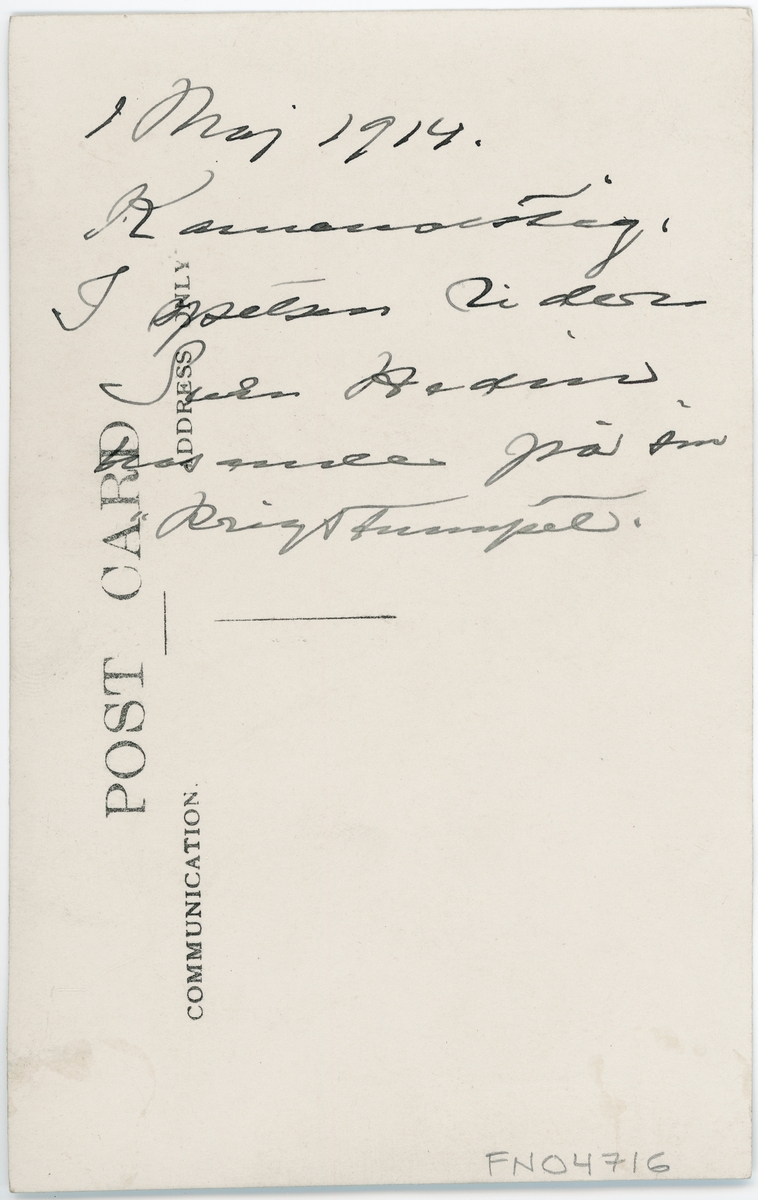 1 Maj 1914.
Karnevalståg.
I spetsen rider
Sven Hedin
på sin
"Krigstrumpet.
POST CARD
ADDRESS ONLY
COMMUNICATION.
FNO4716